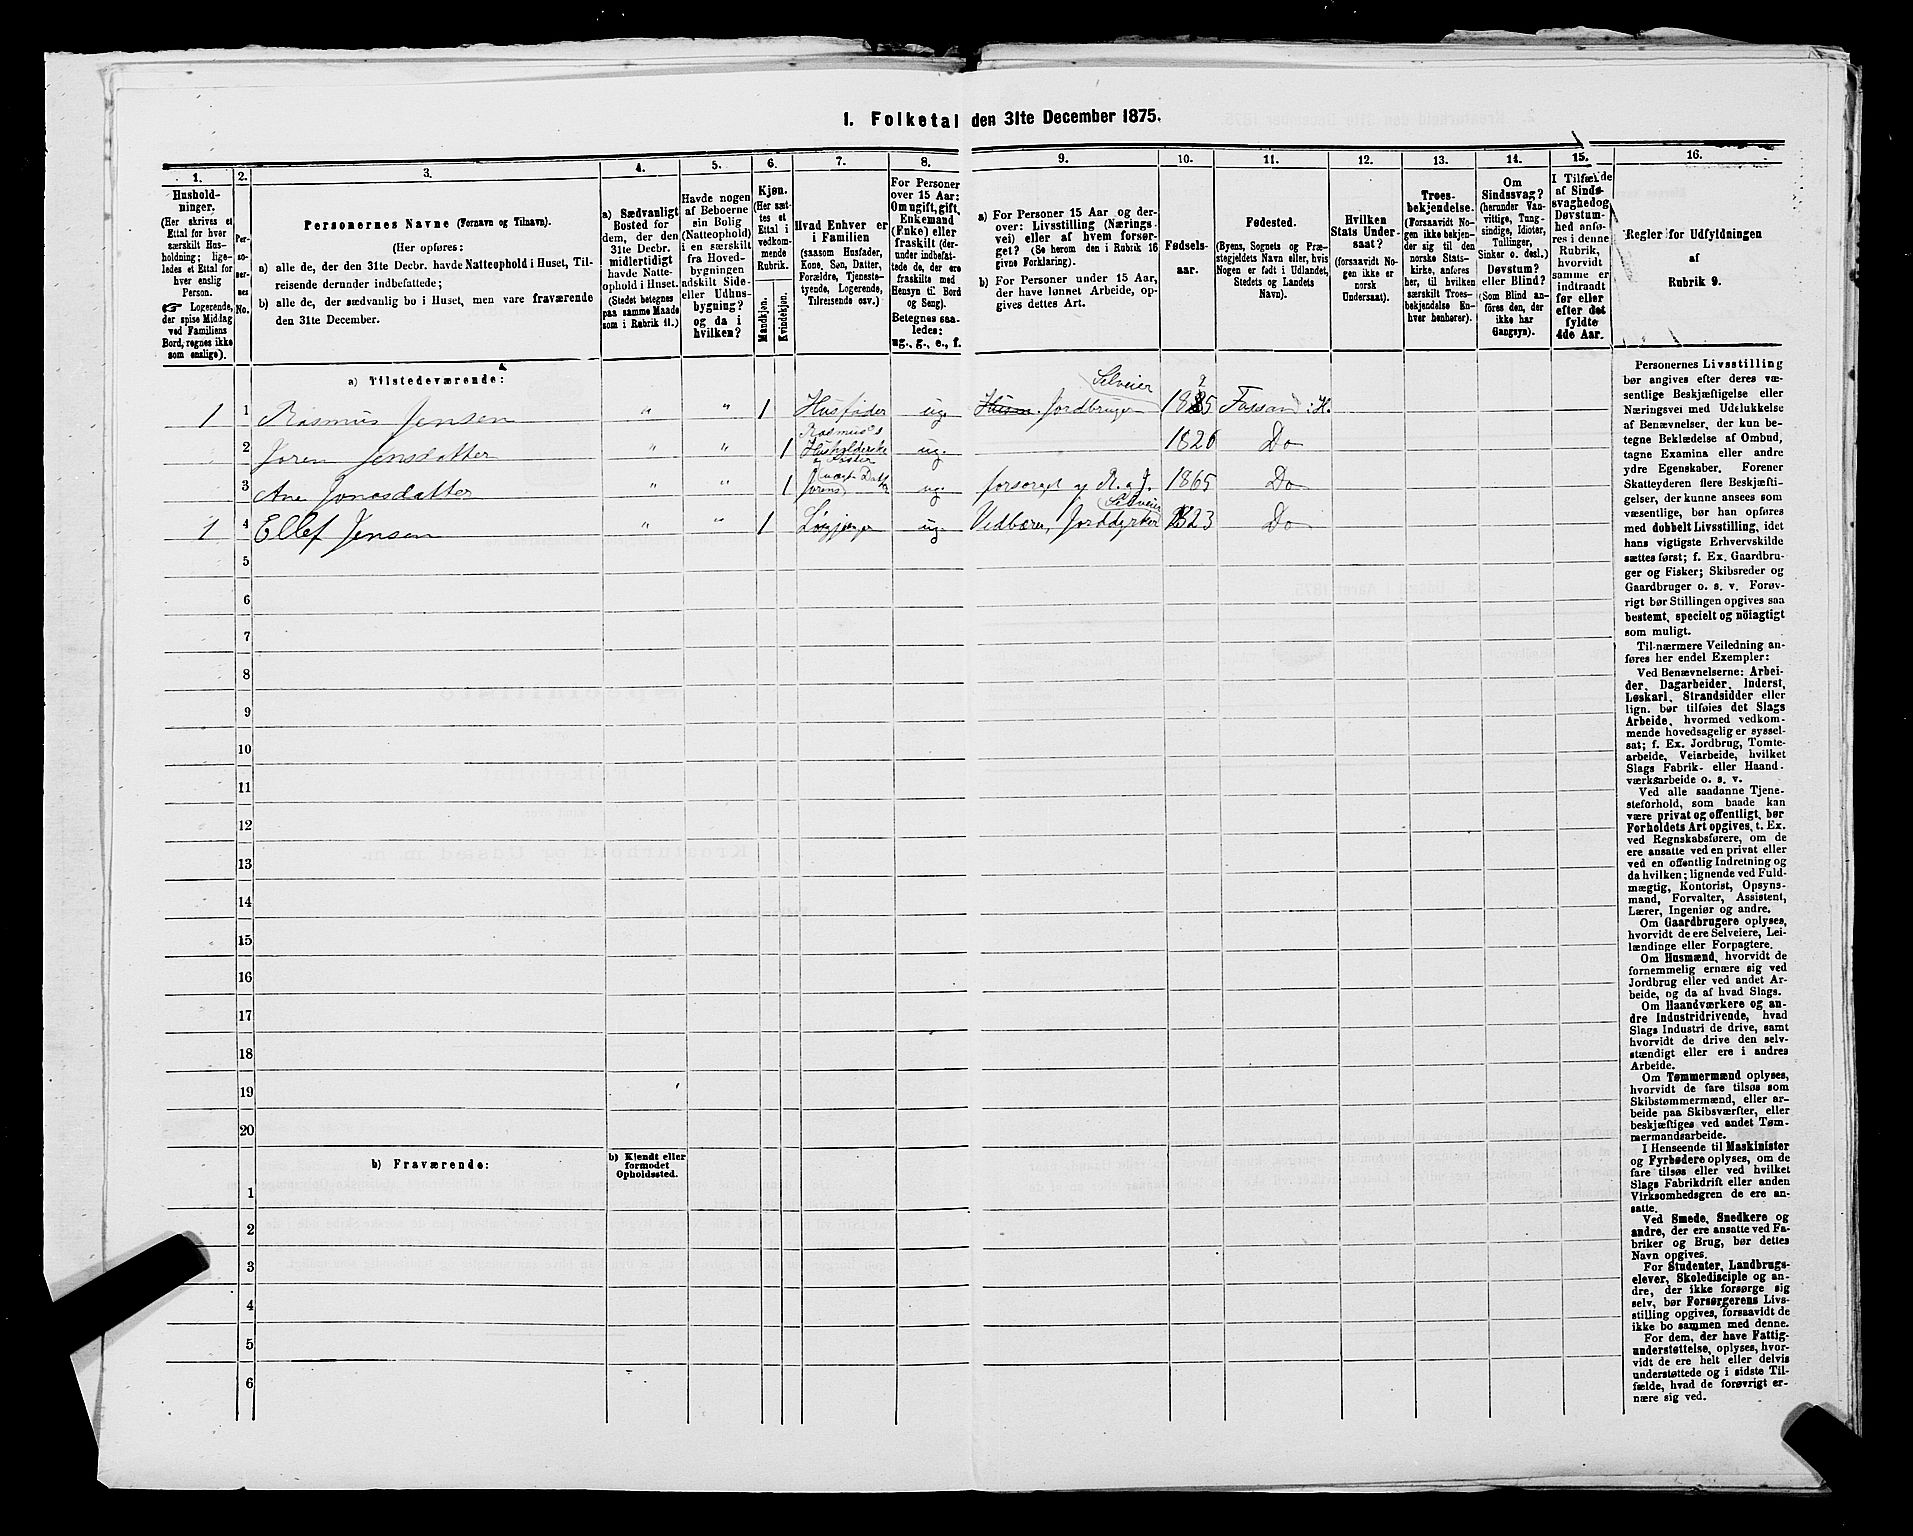 1. Folketal den 31te December 1875.
1. 2. 3. 4. 5. 6. 7. 8. 9. 10. 11. 12. 13. 14. 15. 16.
Husholdninger.
(Her skrives et
Ettal for hver
særskilt Husholdning;
ligeledes et Ettal for
hver enslig
Person.
☞ Logerende,
der spise Middag
ved Familiens
Bord, regnes ikke
som enslige).
Personernes No.
Personernes Navne (Fornavn og Tilnavn).
(Her opføres:
a) alle de, der den 31te Decbr. havde Natteophold i Huset, Tilreisende derunder indbefattede;
b) alle de, der sædvanlig bo i Huset, men vare fraværende
den 31te December.
a) Sædvanligt
Bosted for
dem, der den
31te Decbr.
midlertidigt
havde Natteophold i Huset.
(Stedet betegnes
paa samme Maade
som i Rubrik 11.)
Havde nogen
af Beboerne
sin Bolig
(Natteophold)
i en særskilt
fra Hovedbygningen
adskilt Side-
eller Udhusbygning?
og da i
hvilken?
Kjøn.
(Her sættes et
Ettal i
vedkommende
Rubrik.
Mandkjøn.
Kvindekjøn.
Hvad Enhver er
i Familien
(saasom Husfader,
Kone, Søn, Datter,
Forældre, Tjenestetyende, Logerende,
Tilreisende osv.)
For Personer
over 15 Aar:
Om ugift, gift,
Enkemand
(Enke) eller
fraskilt (derunder indbefattede de, der ere
fraskilte med
Hensyn til Bord
og Seng).
Betegnes saaledes:
ug., g., e., f.
a) For Personer 15 Aar og derover: Livsstilling (Næringsvei) eller af hvem forsørget? (Se herom den i Rubrik 16
givne Forklaring).
b) For Personer under 15 Aar,
der have lønnet Arbeide, opgives dettes Art.
Fødselsaar.
Fødested.
(Byens, Sognets og Præstegjeldets Navn eller, hvis
Nogen er født i Udlandet,
Stedets og Landets
Navn).
Hvilken
Stats Undersaat?
(forsaavidt Nogen ikke er
norsk
Undersaat).
Troesbekjendelse.
(Forsaavidt Nogen ikke bekjender sig til den
norske Statskirke, anføres
her, til hvilken
særskilt Troesbekjendelse Enhver henhører).
Om
Sindssvag?
(herunder Vanvittige, Tungsindige, Idioter,
Tullinger,
Sinker o. desl.)
Døvstum?
eller Blind?
(Som Blind anføres den, der
ikke har
Gangsyn).
I Tilfælde
af Sindssvaghed og
Døvstumhed anføres i denne
Rubrik,
hvorvidt
samme er
indtraadt
før eller
efter det
fyldte
4de Aar.
Regler for Udfyldningen
af
Rubrik 9.
a) Tilstedeværende:
1 1 Rasmus Jensen " " 1 Husfader ug. Husm. Selveier Jordbruger 1825 Fossan i H.
2 Joren Jensdatter " " 1 Rasmuses Husholderske og Søster ug. 1826 Do
3 Ane Jonasdatter " " 1 Jorens uægte Datter ug. forsørget af R. og J. 1865 Do
1 4 Ellef Jensen " " 1 ug. Vedbærer, Selveier Jorddyrker 1823 Do
5
6
7
8
9
10
11
12
13
14
15
16
17
18
19
20
b) Fraværende:
b) Kjendt eller
formodet
Opholdssted.
1
2
3
4
5
6
Personernes Livsstilling
bør angives efter deres væsentlige Beskjæftigelse eller
Næringsvei med Udelukkelse
af Benævnelser, der kun betegne Beklædelse af Ombud,
tagne Examina eller andre
ydre Egenskaber. Forener
Skatteyderen flere Beskjæftigelser, der kunne ansees som
væsentlige, bør han opføres
med dobbelt Livsstilling, idet
hans vigtigste Erhvervskilde
sættes først; f. Ex. Gaardbruger og Fisker; Skibsreder og
Gaardbruger o. s. v. Forøvrigt bør Stillingen opgives saa
bestemt, specielt og nöiagtigt
som muligt.
Til nærmere Veiledning anføres her endel Exempler:
Ved Benævnelserne: Arbeider, Dagarbeider, Inderst,
Løskarl, Strandsidder eller
lign. bør tilføies det Slags
Arbeide, hvormed vedkommende hovedsagelig er sysselsat; f. Ex. Jordbrug, Tomtearbeide, Veiarbeide, hvilket
Slags Fabrik- eller Haandværksarbeide o. s. v.
Ved alle saadanne Tjenesteforhold, som baade kan
være privat og offentligt, bør
Forholdets Art opgives, t. Ex.
ved Regnskabsførere, om de
ere ansatte ved en privat eller
ved en offentlig Indretning og
da hvilken; lignende ved Fuldmægtig, Kontorist, Opsynsmand, Forvalter, Assistent,
Lærer, Ingeniør og andre.
Om Gaardbrugere oplyses,
hvorvidt de ere Selveiere, Leilændinge eller Forpagtere.
Om Husmænd, hvorvidt de
fornemmelig ernære sig ved
Jordbrug eller ved andet Arbeide, og da af hvad Slags.
Om Haandværkere og andre Industridrivende, hvad
Slags Industri de drive, samt
hvorvidt de drive den selvstændigt eller ere i andres
Arbeide.
Om Tømmermænd oplyses,
hvorvidt de fare tilsøs som
Skibstømmermænd, eller arbeide paa Skibsværfter, eller
beskjæftiges ved andet Tømmermandsarbeide.
I Henseende til Maskinister
og Fyrbødere oplyses, om de
fare tilsøs eller ved hvilket
Slags Fabrikdrift eller anden
Virksomhedsgren de ere ansatte.
Ved Smede, Snedkere og
andre, der ere ansatte ved Fabriker og Brug, bør dettes
Navn opgives.
For Studenter, Landbrugselever, Skoledisciple og andre, der ikke forsørge sig
selv, bør Forsørgerens Livsstilling opgives, forsaavidt de
ikke bo sammen med denne.
For dem, der have Fattigunderstøttelse, oplyses, hvorvidt de ere helt eller delvis
understøttede og i sidste Tilfælde, hvad de forøvrigt ernære sig ved.